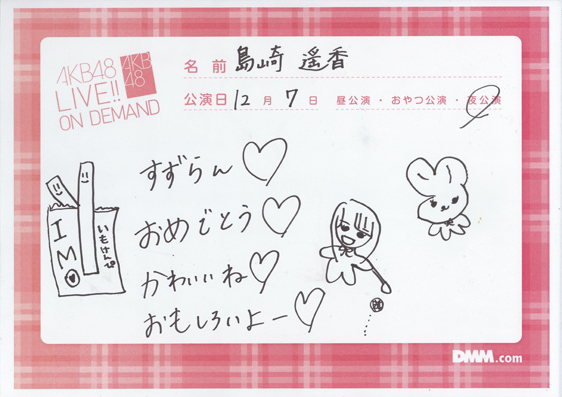 AKB48
LIVE!!
ON DEMAND
AKB
48
名前 島崎 遥香
公演日 12月 7日 昼公演・おやつ公演・夜公演
すずらん♡
おめでとう♡
かわいいね♡
おもしろいよー♡
IMO
いもけんぴ
DMM.com